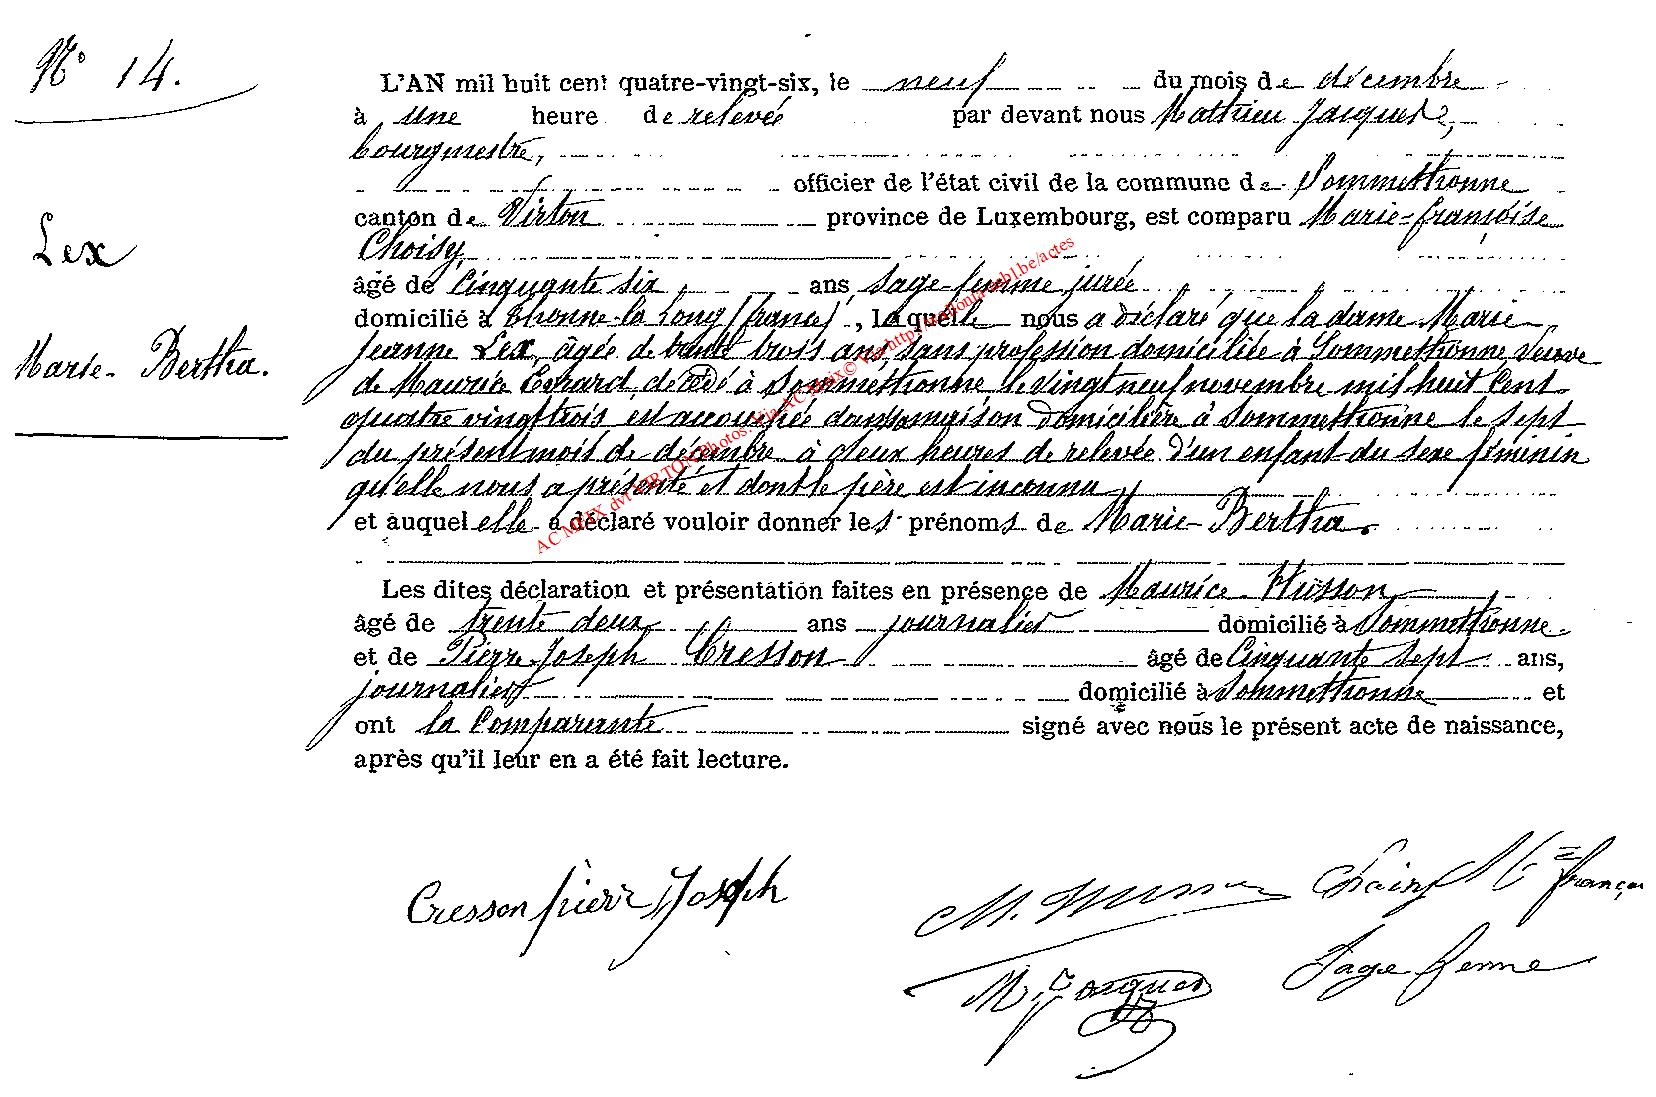 N° 14.
L'AN mil huit cent quatre-vingt-six, le neuf du mois de décembre
à une heure de relevée par devant nous Mathieu Jacques,
bourgmestre,
officier de l'état civil de la commune de Sommethonne
canton de Virton province de Luxembourg, est comparu Marie-françoise
Choisy,
âgé de Cinquante six ans, sage-femme jurée
domicilié à thonne-la Long (france), laquelle nous a déclaré que la dame Marie
Jeanne Lex, âgée de trente trois ans, sans profession domiciliée à Sommethonne, veuve
de Maurice Evrard, décédé à Sommethonne, le vingt neuf novembre mil huit Cent
quatre vingt trois est accouchée dans sa maison domicilière à Sommethonne le sept
du présent mois de décembre à deux heures de relevée d'un enfant du sexe féminin
qu'elle nous a présenté et dont le père est inconnu
et auquel elle a déclaré vouloir donner les prénoms de Marie-Bertha.
Les dites déclaration et présentation faites en présence de Maurice Husson
âgé de trente deux ans journalier domicilié à Sommethonne
et de Pierre-Joseph Cresson âgé de Cinquante sept ans,
journalier domicilié à Sommethonne et
ont la Comparante signé avec nous le présent acte de naissance,
après qu'il leur en a été fait lecture.
Lex
Marie-Bertha.
Cresson pierre Joseph
M. Husson
Choisy
M. Jacques
Sage femme